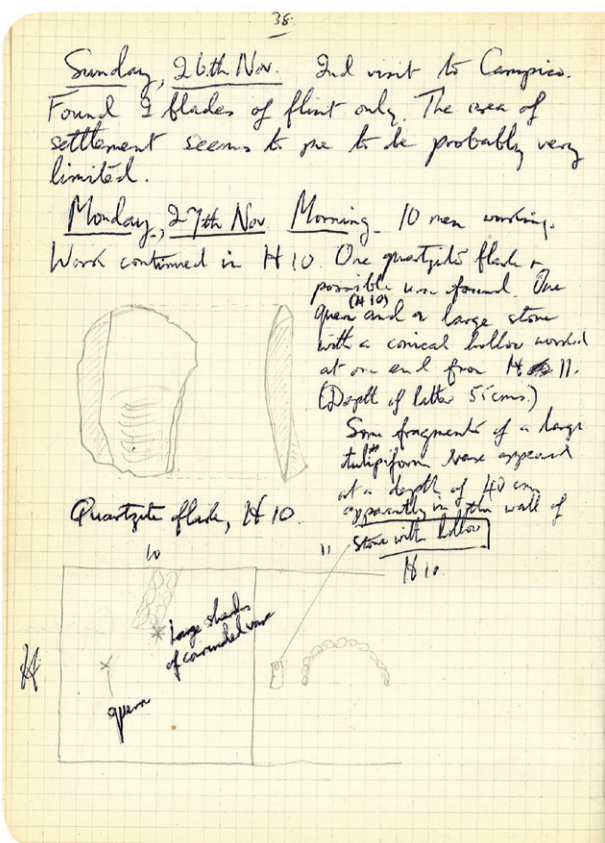 38
Sunday, 26th Nov. 2nd visit to Campico.
Found 2 blades of flint only. The area of
settlement seems to me to be probably very
limited.
Monday, 27th Nov Morning. 10 men working.
Work continued in H 10. One quartzite flake &
possible found. One
(H 10)
quern and a large stone
with a conical hollow worked
at one end from H 11.
(Depth of latter 55cms.)
Some fragments of a large
tulipiform vase appeared
at a depth of 40 cm
apparently in the wall of
H 10.
Quartzite flake, H 10.
stone with hollow
10
11
Large sherds
of carinated vase
H
quern